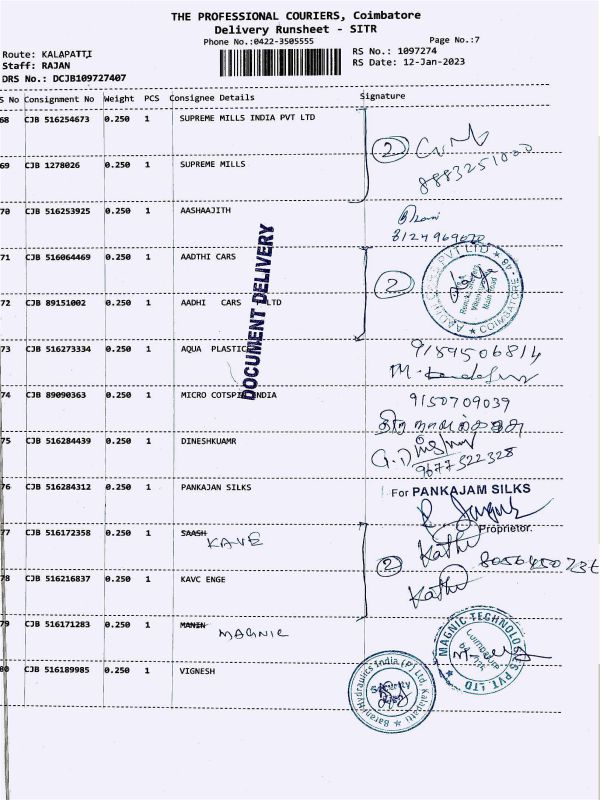 THE PROFESSIONAL COURIERS, Coimbatore
Delivery Runsheet - SITR
Phone No.:0422-3505555
Page No.:7
Route: KALAPATTI
RS No.: 1097274
Staff: RAJAN
RS Date: 12-Jan-2023
DRS No.: DCJB109727407
S No Consignment No Weight PCS Consignee Details Signature
68 CJB 516254673 0.250 1 SUPREME MILLS INDIA PVT LTD
2
69 CJB 1278026 0.250 1 SUPREME MILLS
70 CJB 516253925 0.250 1 AASHAAJITH
71 CJB 516064469 0.250 1 AADTHI CARS
72 CJB 89151002 0.250 1 AADHI CARS LTD
2
COIMBATORE
DOCUMENT DELIVERY
73 CJB 516273334 0.250 1 AQUA PLASTIC
9159506814
74 CJB 89090363 0.250 1 MICRO COTSPIN INDIA
9150709039
75 CJB 516284439 0.250 1 DINESHKUAMR
9677522328
76 CJB 516284312 0.250 1 PANKAJAN SILKS
For PANKAJAM SILKS
Proprietor.
77 CJB 516172358 0.250 1 SAASH
KAVE
Kathi
2
78 CJB 516216837 0.250 1 KAVC ENGE
Kathi
79 CJB 516171283 0.250 1 MANIN
MAGNIC
MAGNIC TECHNOLOGIES PVT. LTD
80 CJB 516189985 0.250 1 VIGNESH
India (P) Ltd, Kalapatti
Security